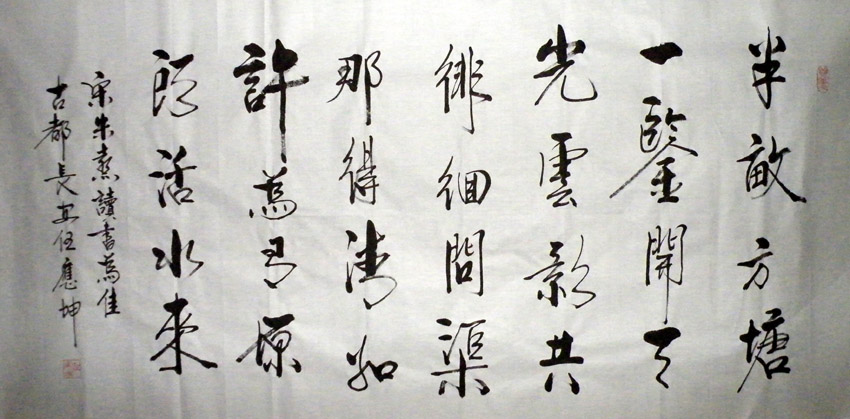 半畝方塘
一鑒開天
光雲影共
徘徊問渠
那得清如
許為有源
頭活水來
宋朱熹讀書為佳
古都長安任應坤